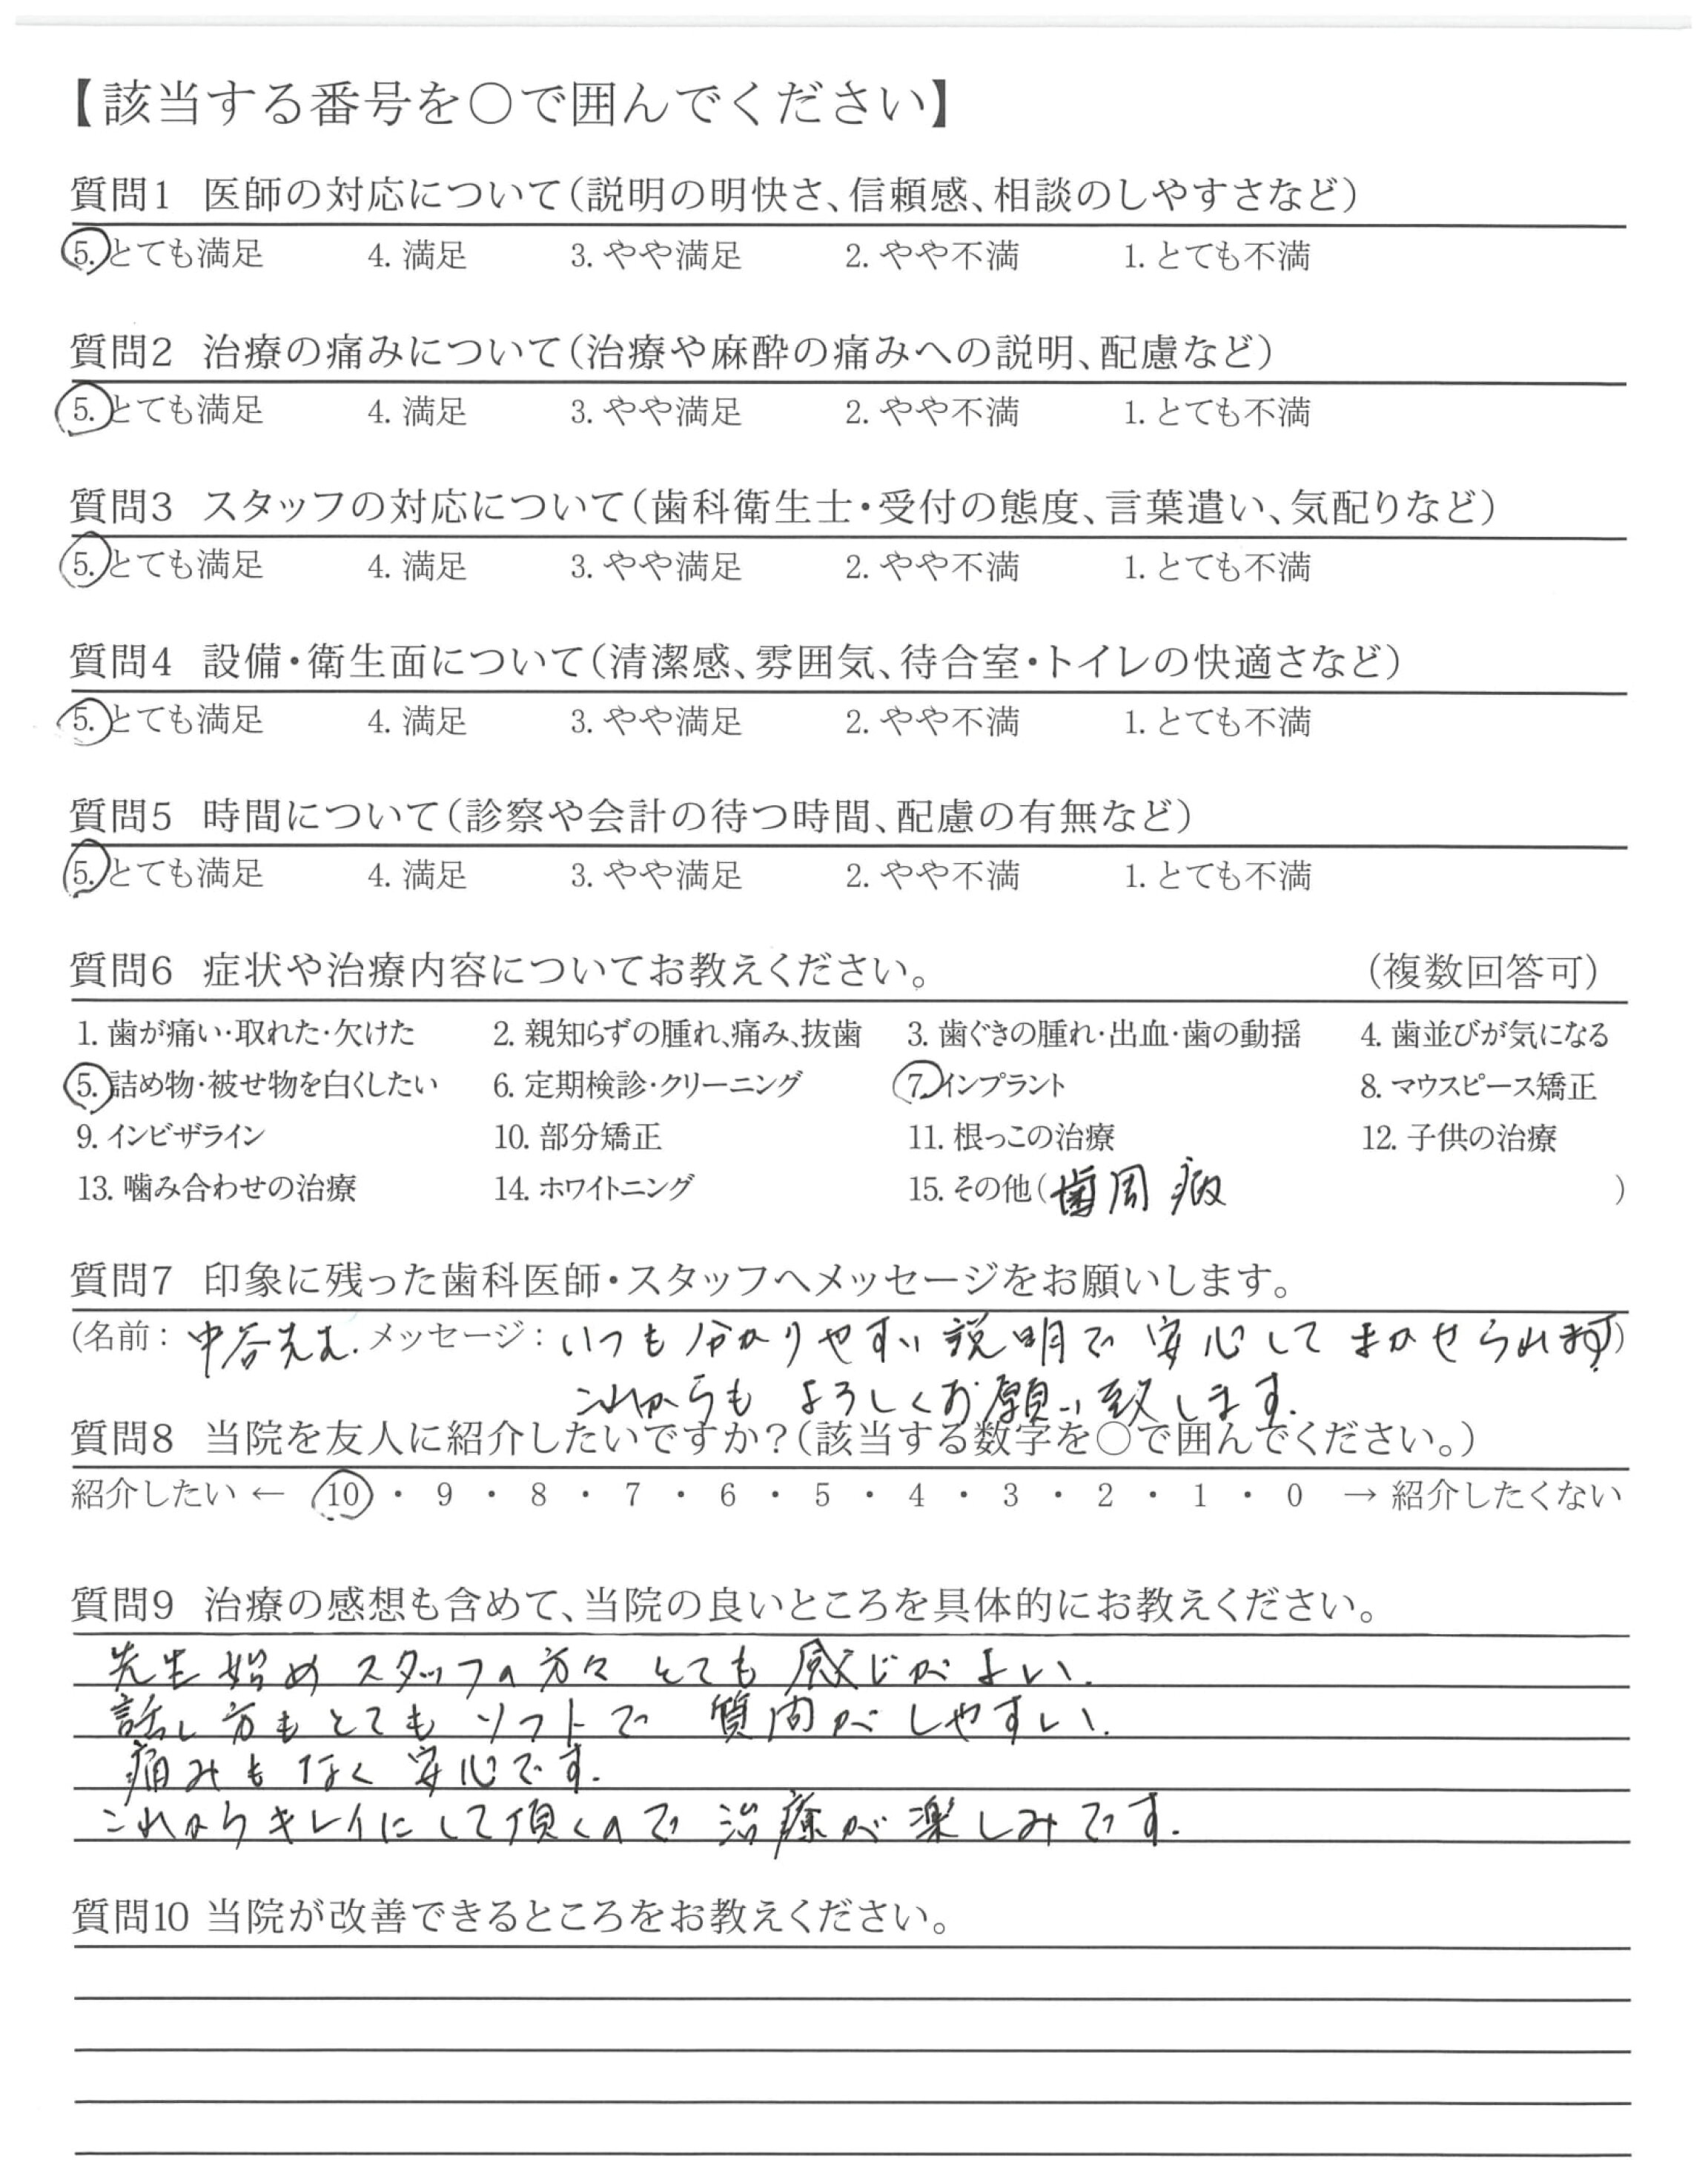 【該当する番号を〇で囲んでください】
質問1 医師の対応について(説明の明快さ、信頼感、相談のしやすさなど)
5. とても満足 4. 満足 3. やや満足 2. やや不満 1. とても不満
質問2 治療の痛みについて(治療や麻酔の痛みへの説明、配慮など)
5. とても満足 4. 満足 3. やや満足 2. やや不満 1. とても不満
質問3 スタッフの対応について(歯科衛生士・受付の態度、言葉遣い、気配りなど)
5. とても満足 4. 満足 3. やや満足 2. やや不満 1. とても不満
質問4 設備・衛生面について(清潔感、雰囲気、待合室・トイレの快適さなど)
5. とても満足 4. 満足 3. やや満足 2. やや不満 1. とても不満
質問5 時間について(診察や会計の待つ時間、配慮の有無など)
5. とても満足 4. 満足 3. やや満足 2. やや不満 1. とても不満
質問6 症状や治療内容についてお教えください。 (複数回答可)
1. 歯が痛い・取れた・欠けた 2. 親知らずの腫れ、痛み、抜歯 3. 歯ぐきの腫れ・出血・歯の動揺 4. 歯並びが気になる
5. 詰め物・被せ物を白くしたい 6. 定期検診・クリーニング 7. インプラント 8. マウスピース矯正
9. インビザライン 10. 部分矯正 11. 根っこの治療 12. 子供の治療
13. 噛み合わせの治療 14. ホワイトニング 15. その他(歯周病 )
質問7 印象に残った歯科医師・スタッフへメッセージをお願いします。
(名前: 中谷先生. メッセージ: いつも分かりやすい説明で安心してまかせられます)
これからもよろしくお願い致します.
質問8 当院を友人に紹介したいですか?(該当する数字を〇で囲んでください。)
紹介したい ← 10 ・ 9 ・ 8 ・ 7 ・ 6 ・ 5 ・ 4 ・ 3 ・ 2 ・ 1 ・ 0 → 紹介したくない
質問9 治療の感想も含めて、当院の良いところを具体的にお教えください。
先生始めスタッフの方々とても感じがよい.
話し方もとてもソフトで質問がしやすい.
痛みもなく安心です.
これからキレイにして頂くので治療が楽しみです.
質問10 当院が改善できるところをお教えください。